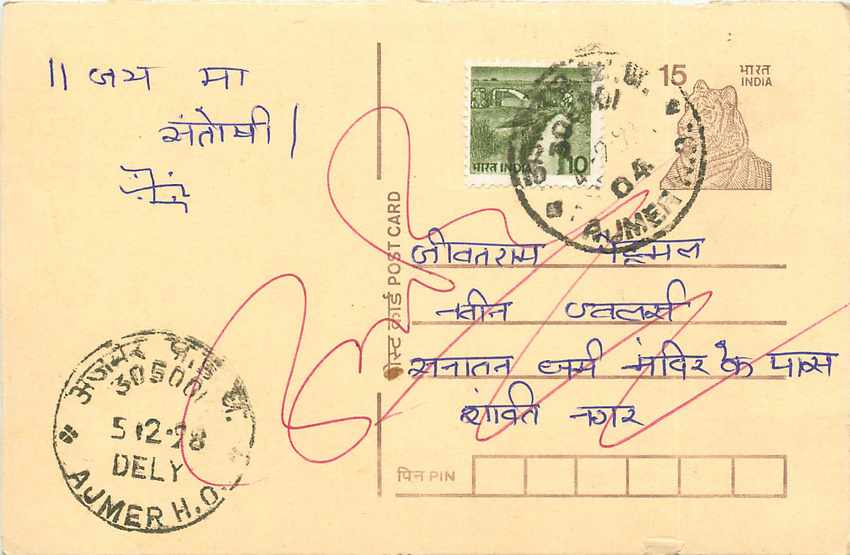 ॥ जय मा
संतोषी।
15 भारत
INDIA
भारत INDIA 10
305001
04
AJMER H.O.
पोस्ट कार्ड POST CARD
जीवतराम
नवीन ज्वलर्स
सनातन धर्म मंदिर के पास
शांति नगर
पिन PIN
अजमेर
305001
5 12-98
DELY
AJMER H.O.